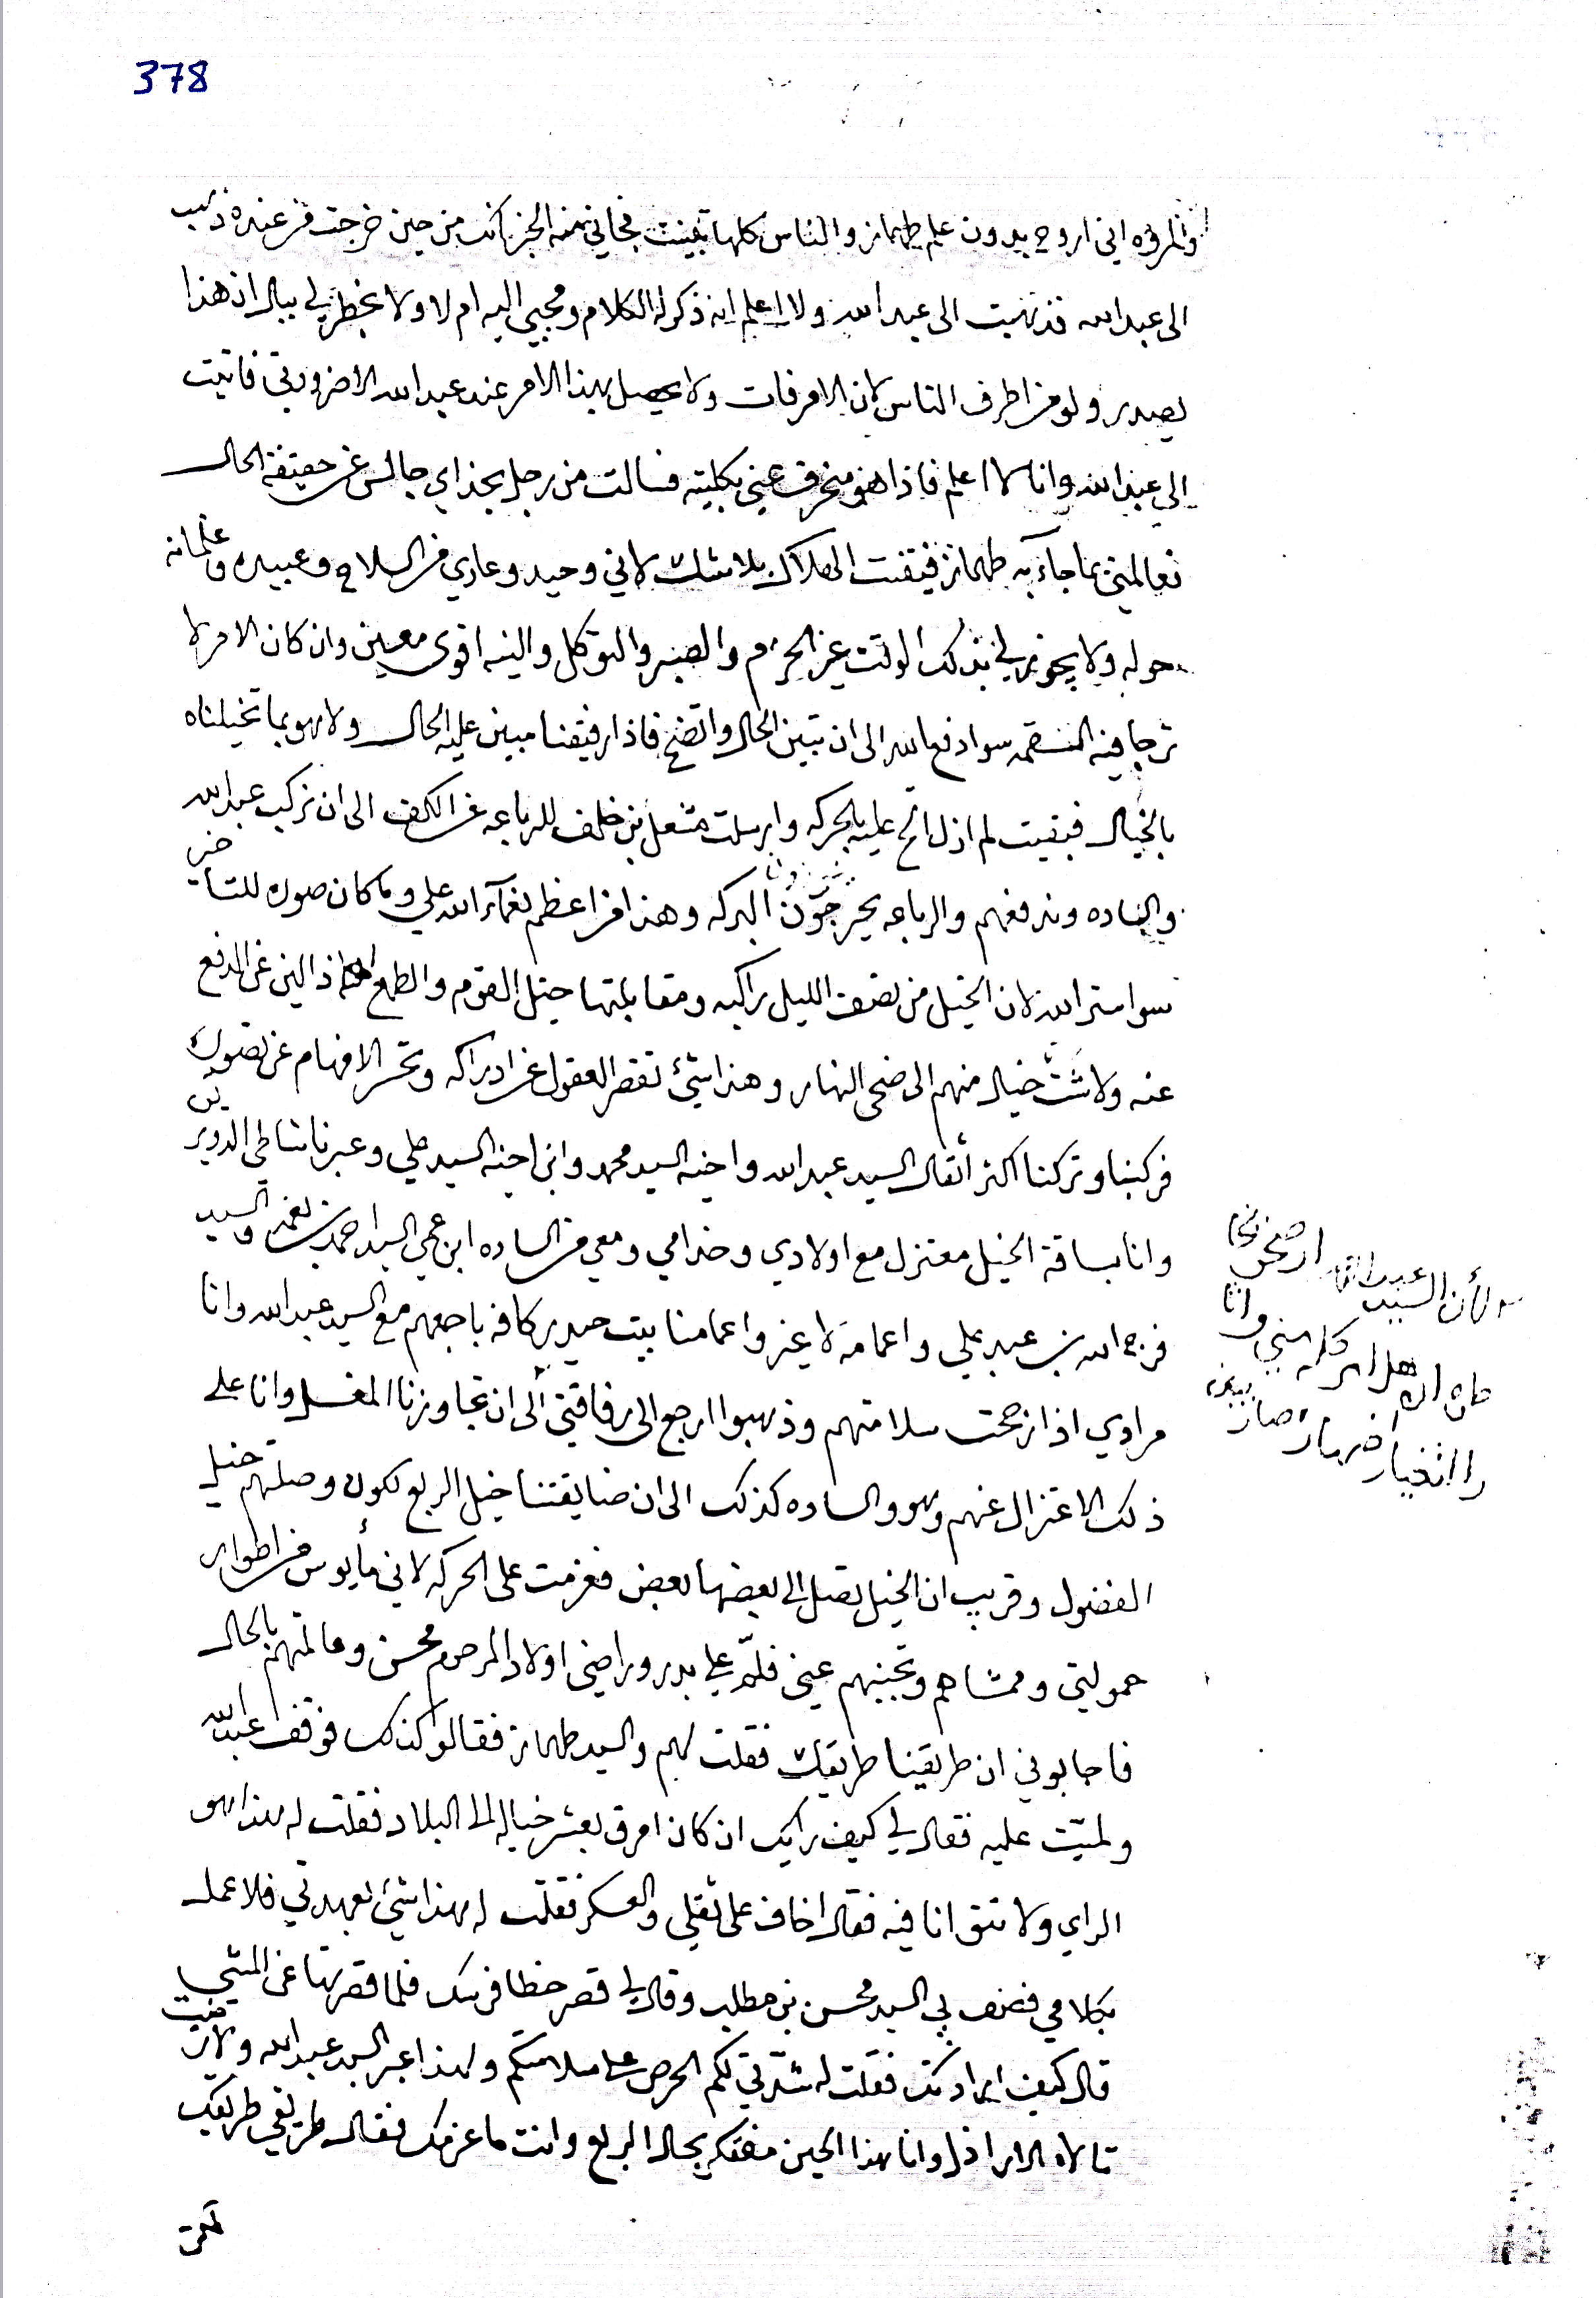 378
والمروه اني اروح بدون علم طهماز والناس كلها تبينت فجاني منه الخبر كنت من حين خرجت من عنده ذهب
الى عبد الله فذهبت الى عبد الله ولا اعلم انه ذكر له الكلام ومجيي اليه ام لا ولا يخطر لي ببال ان هذا
يصدر ولو من اطرف الناس لان الامر فات ولا يحصل بهذا الامر عند عبد الله الا ضرورتي فاتيت
الى عبد الله وانا لا اعلم فاذا هو منحرف عني بكليته فسالت من رجل بحذاي جالس عن حقيقة الحال
فعالمني بما جآء به طهماز فتيقنت الهلاك بلا شك لاني وحيد وعاري من السلاح وعبيده وغلمانه
حوله ولا يجوز لي بذلك الوقت غير الحزم والصبر والتوكل والنيه اقوى معين وان كان الامر لا
ترجا فيه سوا دفع الله الى ان تبين الحال واتضح فاذا رفيقنا مبين عليه الحال ولا هو بما تخيلناه
بالخيال فبقيت لم ازل الح عليه بالحركه وارسلت مشعل بن خلف للرباعه عن الكف الى ان نركب عبد الله
والساده وندفعهم والرباعه يحرجون البركه وهذا من اعظم نعمآء الله علي وما كان صوره للتأخير
سوا ستر الله لان الخيل من نصف الليل راكبه ومقابلتها خيل القوم والطمع عن الدفع
عنه ولا شث خيال منهم الى ضحى النهار وهذا شئ تقصر العقول عن ادراكه وتحسر الافهام عن تصوره
فركبنا وتركنا اكثر اثقال السيد عبد الله واخيه السيد محمد وابن اخيه السيد علي وعبرنا شاطي الدويريس
وانا بساقة الخيل معتزل مع اولادي وخدامي ومعي من الساده ابن عمي السيد احمد بن نعمه والسيد
فرج الله بن عبد علي واعمامه لا غير واعمامنا بيت حيدر كافه باجمعهم مع السيد عبد الله وانا
مرادي اذا نرجحت سلامتهم وذهبوا ارجع الى رفاقتي الى ان تجاوزنا المغسل وانا على
ذلك الاعتزال عنهم وهو والساده كذلك الى ان ضايقتنا خيل الربع لكون وصلتهم خيل
الفضول وقريب ان الخيل تصل الى بعضها بعض فعزمت على الحركه لاني مأيوس من اطوار
حمولتي وممشاهم وتجنبهم عني فلمّ علي بدر وراضي اولاد المرحوم محسن وعالمتهم بالحال
فاجابوني ان طريقنا طريقك فقلت لهم والسيد طهماز فقالوا كذلك فوقف عبد الله
ولميّت عليه فقال لي كيف رايك ان كان امرق بعشر خياله الى البلاد فقلت له هذا هو
الراي ولا تتق انا فيه فقال اخاف على ثقلي والعسكر فقلت له هذا شئ بعهدتي فلا عمل
بكلامي فضف بي السيد محسن بن مطلب وقال لي قصر خطا فرسك فلما قصرتها عن المشي
قال كيف ارادتك فقلت له شدّتي لكم الحرص على سلامتكم ولهذا عبر السيد عبد الله ولا رضيت
الاراذل وانا هذا الحين مفتكر بحال الربع وانت ما عزمك فقال طريقي طريقك
لان السيد عبد الله
كله مني وانا